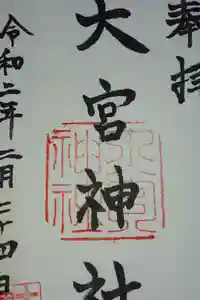 奉拝
大宮神社
令和二年二月二十四日
大宮神社